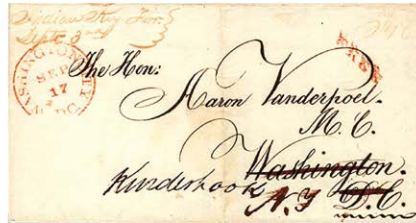 Indian Key Flor.
Septr. 3rd
WASHINGTON CITY
SEP
17
D.C.
FREE
The Hon:
Aaron Vanderpoel.
M. C.
Washington.
Kinderhook N.Y D.C.